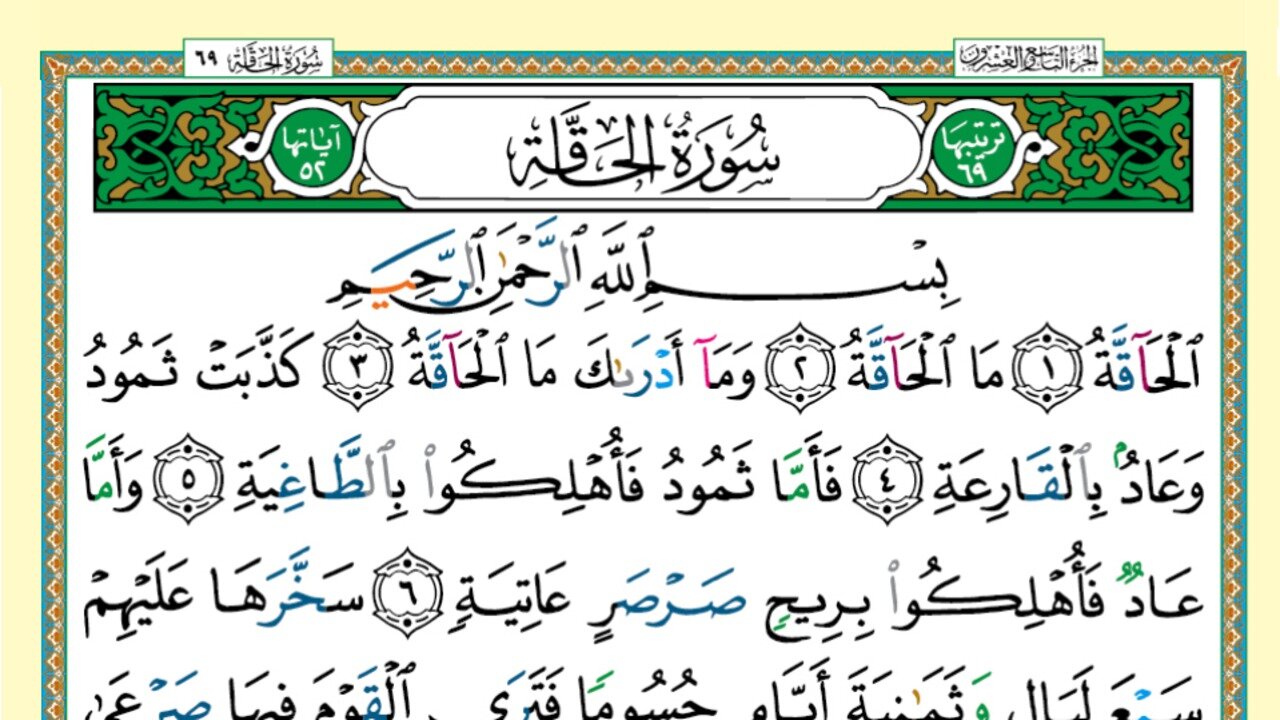 الجزء التاسع والعشرون
سُورَةُ الحَاقَّة ٦٩
ترتيبها ٦٩
سُورَةُ الحَاقَّةِ
آياتها ٥٢
بِسْمِ ٱللَّهِ ٱلرَّحْمَٰنِ ٱلرَّحِيمِ
ٱلْحَآقَّةُ ١ مَا ٱلْحَآقَّةُ ٢ وَمَآ أَدْرَىٰكَ مَا ٱلْحَآقَّةُ ٣ كَذَّبَتْ ثَمُودُ
وَعَادُۢ بِٱلْقَارِعَةِ ٤ فَأَمَّا ثَمُودُ فَأُهْلِكُوا۟ بِٱلطَّاغِيَةِ ٥ وَأَمَّا
عَادٌ فَأُهْلِكُوا۟ بِرِيحٍ صَرْصَرٍ عَاتِيَةٍ ٦ سَخَّرَهَا عَلَيْهِمْ
سَبْعَ لَيَالٍ وَثَمَٰنِيَةَ أَيَّامٍ حُسُومًا فَتَرَى ٱلْقَوْمَ فِيهَا صَرْعَىٰ